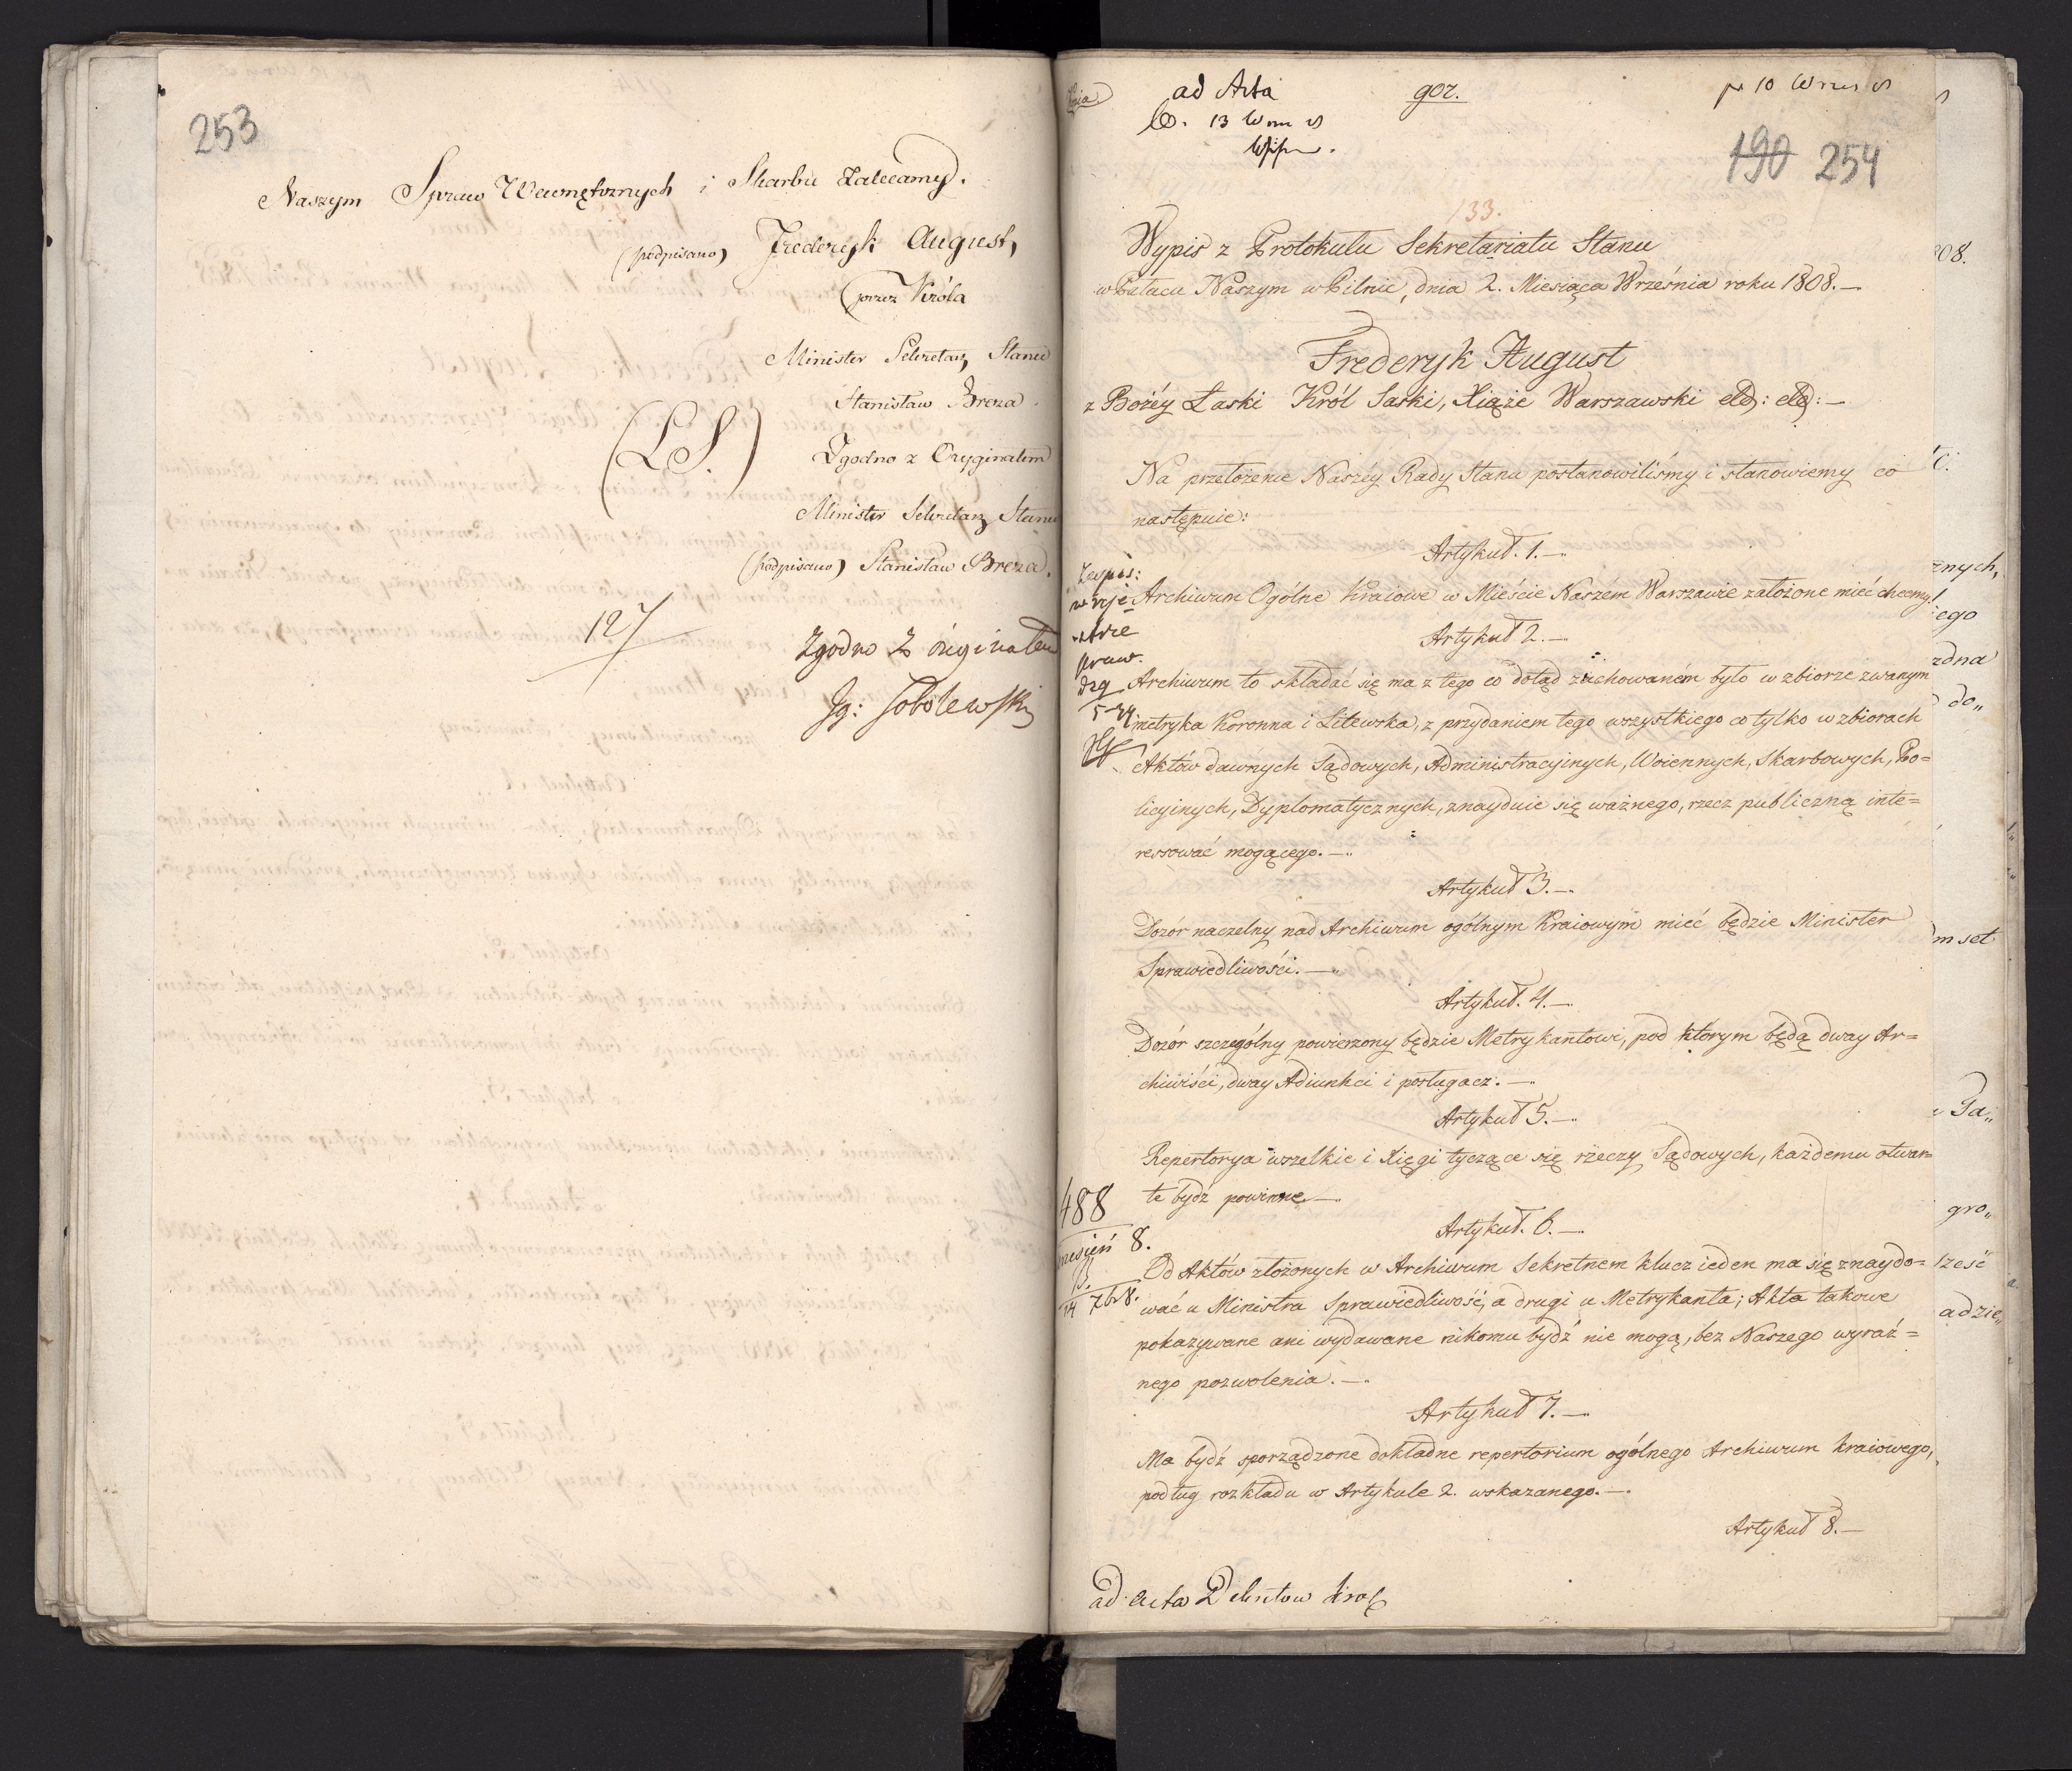 253
Naszym Spraw Wewnętrznych i Skarbu Zalecamy.
(podpisano) Frederyk August,
(przez Króla
Minister Sekretarz Stanu
Stanisław Breza.
(L.S.)
Zgodno z Oryginałem
Minister Sekretarz Stanu
(podpisano) Stanisław Breza.
127
Zgodno z originałem
Jg: Sobolewski
ad Acta
13
902.
10
190 254
133.
Wypis z Protokułu Sekretariatu Stanu
w Pałacu Naszym w Pilnic, dnia 2. Miesiąca Września roku 1808.—
Frederyk August
z Bożéy Łaski Król Saski, Xiąże Warszawski etc: etc:—
Na przełożenie Naszéy Rady Stanu postanowiliśmy i stanowiemy co
następuie:
Artykuł. 1.—
Archiwum Ogólne Kraiowe w Mieście Naszém Warszawie założone mieć chcemy.
Artykuł 2.—
Archiwum to składać się ma z tego co dotąd zachowaném było w zbiorze zwanym
metryka Koronna i Litewska, z przydaniem tego wszystkiego co tylko w zbiorach
Aktów dawnych Sądowych, Administracyinych, Woiennych, Skarbowych, Po=
licyinych, Dyplomatycznych, znayduie się ważnego, rzecz publiczną inte=
ressować mogącego.—
Artykuł 3.—
Dozór naczelny nad Archiwum ogólnym Kraiowym mieć będzie Minister
Sprawiedliwości.—
Artykuł. 4.—
Dozór szczególny powierzony będzie Metrykantowi, pod ktorym będą dway Ar=
chiwiści, dway Adiunkci i posługacz.—
Artykuł 5.—
Repertorya wszelkie i Xięgi tyczące się rzeczy Sądowych, każdemu otwar=
te bydź powinne.—
488
8.
14 7br 8.
Artykuł. 6.—
Od Aktów złożonych w Archiwum Sekretnem klucz ieden ma się znaydo=
wać u Ministra Sprawiedliwości, a drugi u Metrykanta; Akta takowe
pokazywane ani wydawane nikomu bydź nie mogą, bez Naszego wyraź=
nego pozwolenia.—
Artykuł 7.—
Ma bydź sporządzone dokładne repertorium ogólnego Archiwum kraiowego,
podług rozkładu w Artykule 2. wskazanego.—
Artykuł 8.—
ad: Acta Dekretow Krol
08.
znych,
iego
zdna
do„
m set
Ga„
gro„
adzie„